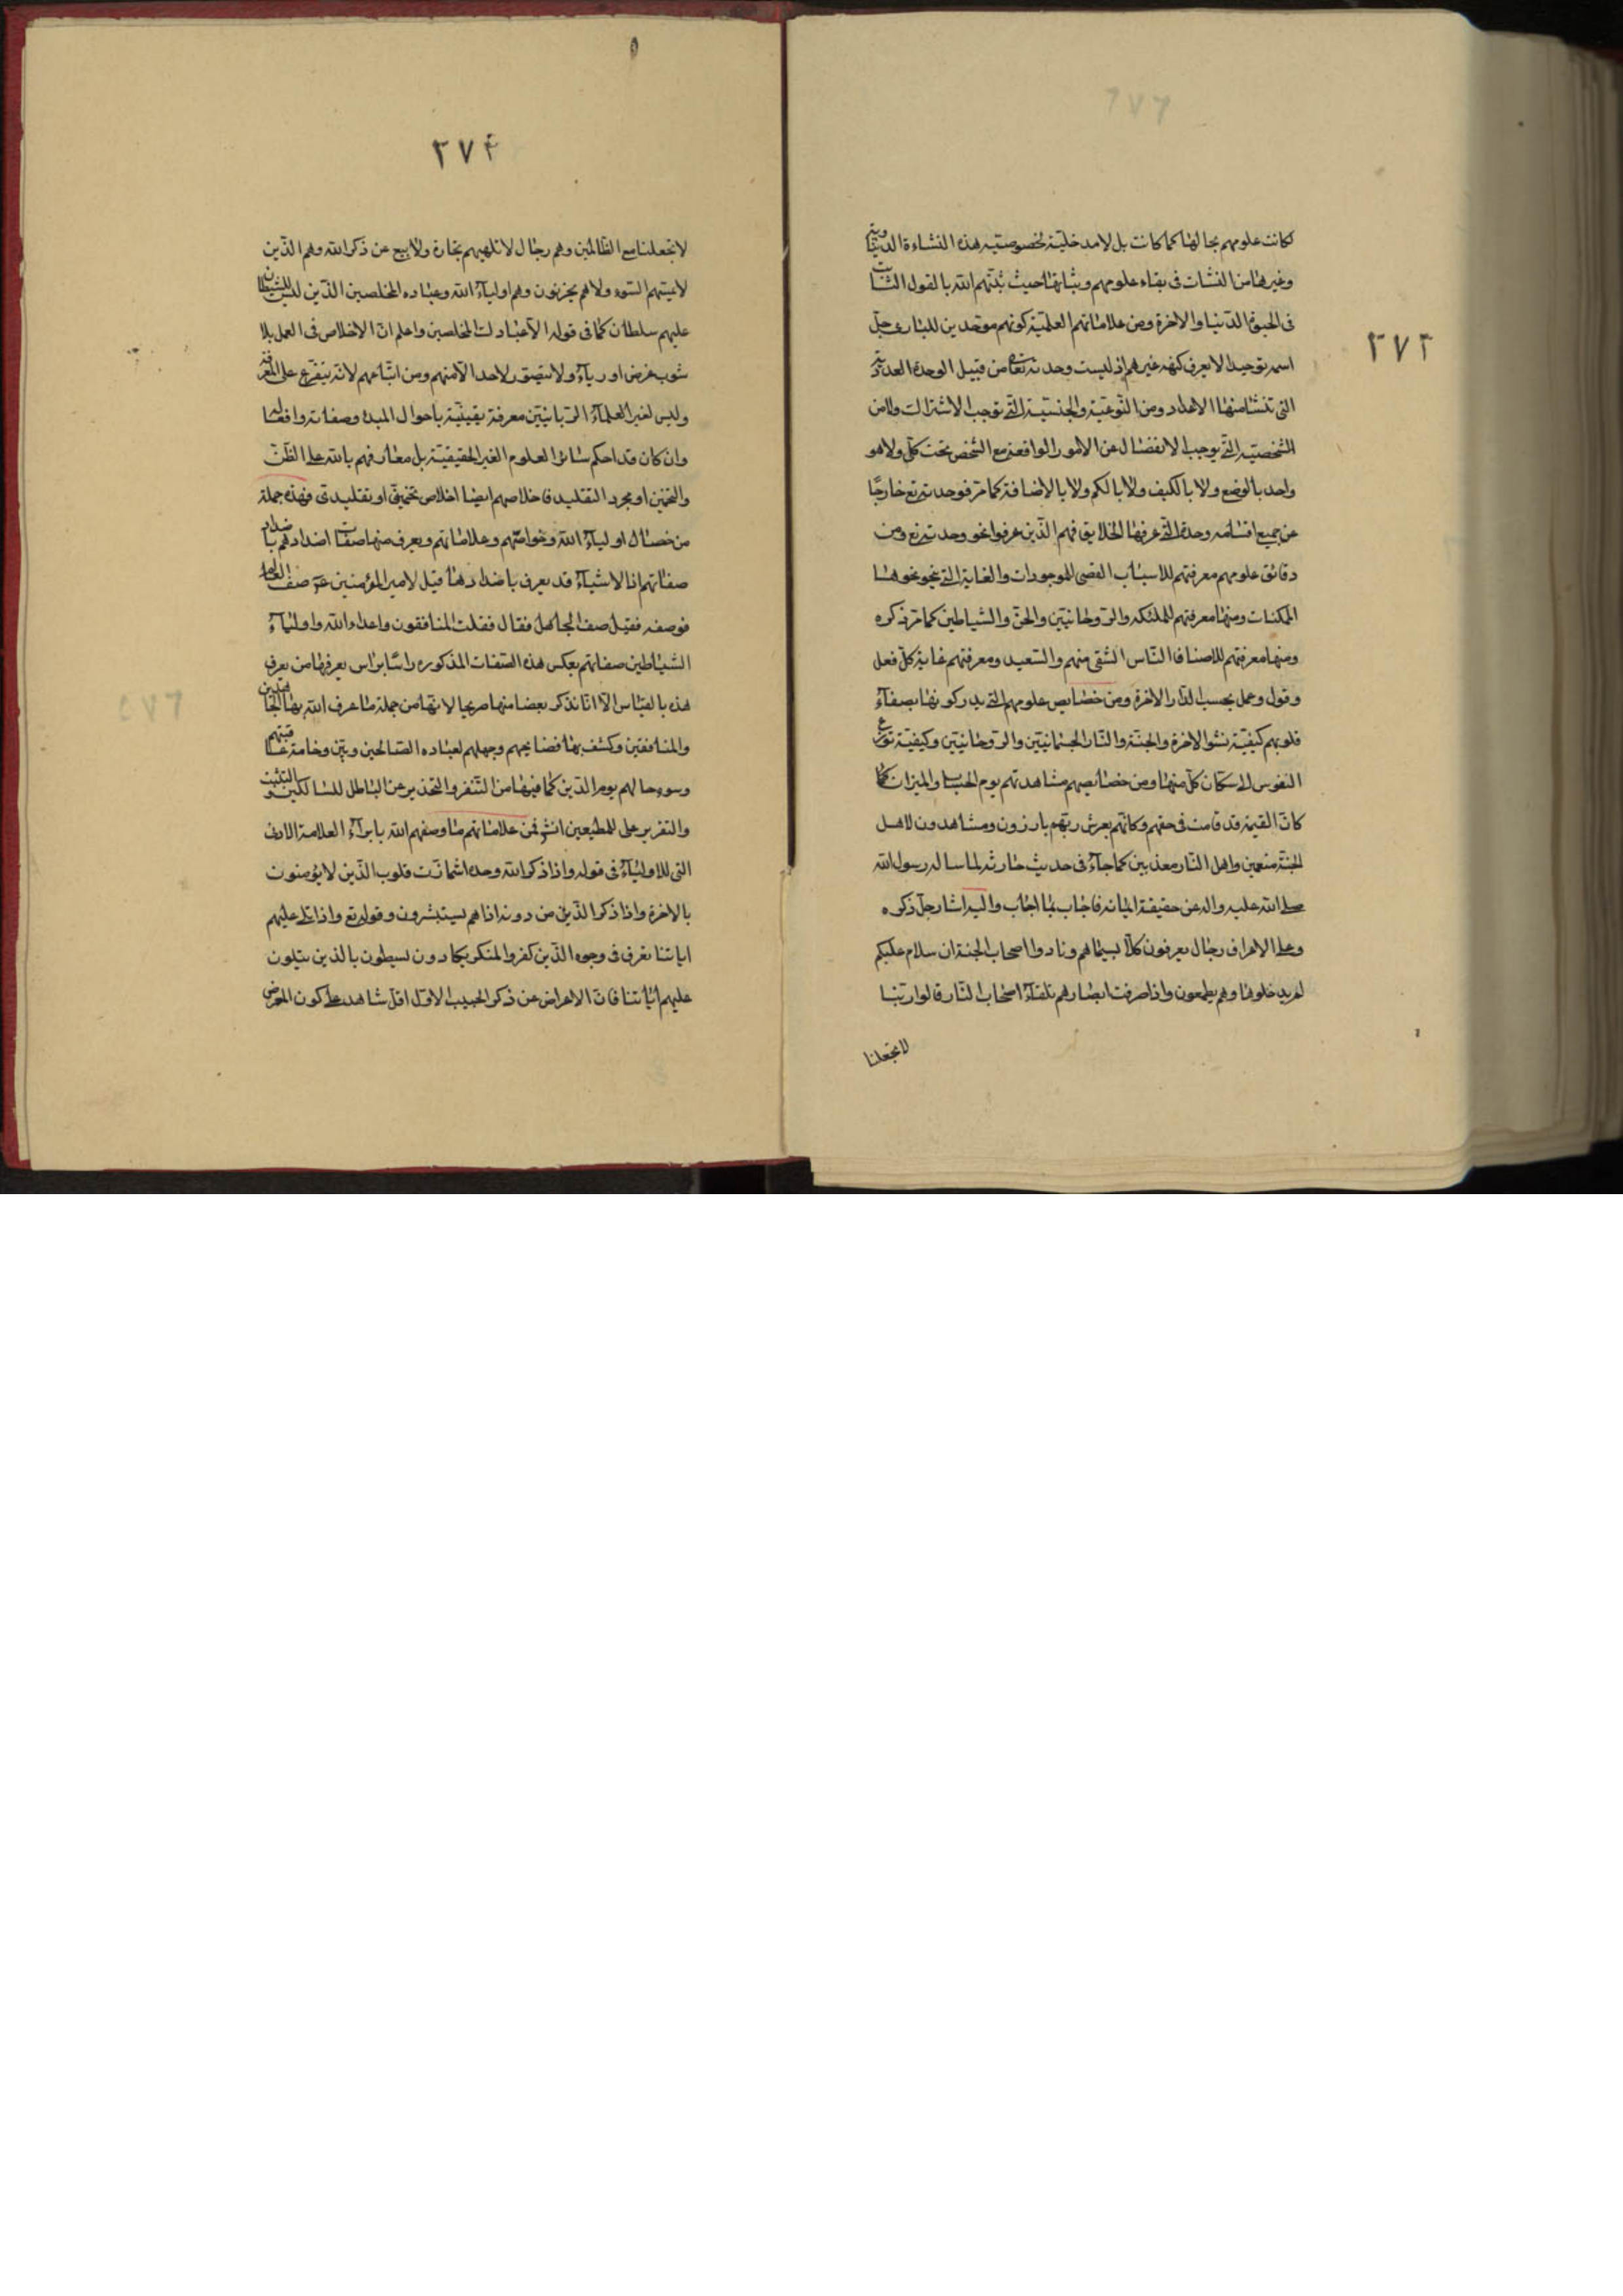 ٢٧٣
كانت علومهم بحالها كما كانت بل لا مدخلية لخصوصيته هذه النشاءة الدنياوية
وغيرها من النشات فى بقاء علومهم وثباتها حيث ثبّتهم الله بالقول الثابت
فى الحيوة الدّنيا والاخرة ومن علاماتهم العلميّة كونهم موحّدين للبارى جلّ
اسمه توحيدا لا يعرف كنهه غيرهم اذ ليست وحدته تعا من قبيل الوحدة العدديّة
التى تنشا منها الاعداد ومن النّوعيّة والجنسيّة التى توجب الاشتراك ولا من
الشخصيّة التى يوجب الانفصال عن الامور الواقعة مع الشخص تحت كلّى ولا هو
واحد بالوضع ولا بالكيف ولا بالكم ولا بالاضافة كما مرّ فوحدته تع خارجًا
عن جميع اقسام وحدة التى عرفها الخلايق فهم الّذين عرفوا نحو وحدته تع ومن
دقائق علومهم معرفتهم للاسباب القصى للموجودات والغاية التى ينحو نحوها
الممكنات ومنها معرفتهم للملئكه والرّوحانيّين والجنّ والشياطين كما مرّ ذكره
ومنها معرفتهم للاصناف النّاس الشقى منهم والسّعيد ومعرفتهم غاية كلّ فعل
وقول وعمل بحسب الدّار الاخرة ومن خصايص علومهم التى يدركونها بصفآء
قلوبهم كيفيّة نشو الاخرة والجنّة والنّار الجسمانيّين والرّوحانيّين وكيفيّة توزع
النفوس الى سكان كلّ منها ومن خصائصهم مشاهدتهم يوم الحساب والميزان كما
كانّ القيمة قد قامت فى حقهم وكانّهم بعرش ربّهم بارزون ومشاهدون لاهل
الجنّة منعمين واهل النّار معذبين كما جآء فى حديث حارثه لما ساله رسول الله
صلى الله عليه واله عن حقيقة ايمانه فاجاب بما اجاب واليه اشار جلّ ذكره
وعلى الاعراف رجال يعرفون كلّا بسيماهم ونادوا اصحاب الجنة ان سلام عليكم
لم يدخلوها وهم يطمعون واذا صرفت ابصارهم تلقآء اصحاب النّار قالوا ربّنا
لا تجعلنا
٢٧۴
لا تجعلنا مع الظّالمين وهم رجال لا تلهيهم تجارة ولا بيع عن ذكر الله وهم الّذين
لا يمسّهم السّوء ولا هم يحزنون وهم اوليآء الله وعباده المخلصين الّذين ليس للشيطان
عليهم سلطان كما فى قوله الّا عبادك المخلصين واعلم انّ الاخلاص فى العمل بلا
شوب غرض او ريآء ولا يتصوّر لاحد الّا منهم ومن اتّباعهم لانّه يتفرّع على المعرفة
وليس لغير العلمآء الرّبانيّين معرفة يقينيّة باحوال المبدء وصفاته وافعاله
وان كان قد احكم سائر العلوم الغير الحقيقيّة بل معارفهم بالله على الظّنّ
والتخمين او مجرد التقليد فاخلاصهم ايضا اخلاص تخمينّى او تقليدىّ فهذه جملة
من خصال اوليآء الله وخواصّهم وعلاماتهم ويعرف منها صفات اضدادهم باضداد
صفاتهم اذ الاشيآء قد يعرف باضدادها قيل لامير المؤمنين ع صف العالم
فوصفه فقيل صف الجاهل فقال فقلت المنافقون واعداء الله واوليآء
الشياطين صفاتهم بعكس هذه الصّفات المذكوره راسًا براس يعرفها من يعرف
هذه بالقياس الّا انّا نذكر بعضا منها صريحا لانّها من جملة ما عرف الله بها الجاحدين
والمنافقين وكشف بها فضايحهم وجهلهم لعباده الصّالحين وبيّن وخامة عاقبتهم
وسوء حالهم يوم الدّين كما فيها من التّنفر والتحذير عن الباطل للسالكين والتثبيت
والتقرير على للمطيعين انش فمن علاماتهم ما وصفهم الله بابرآء العلامة الاولى
التى للاوليآء فى قوله واذا ذكر الله وحده اشمازّت قلوب الّذين لا يؤمنون
بالاخرة واذا ذكر الّذين من دونه اذا هم يستبشرون وقوله تع واذا تتلى عليهم
اياتنا تعرف فى وجوه الّذين كفروا المنكر يكادون يسطون بالّذين يتلون
عليهم اياتنا فانّ الاعراض عن ذكر الحبيب الاول اقلّ شاهد على كون المعرض